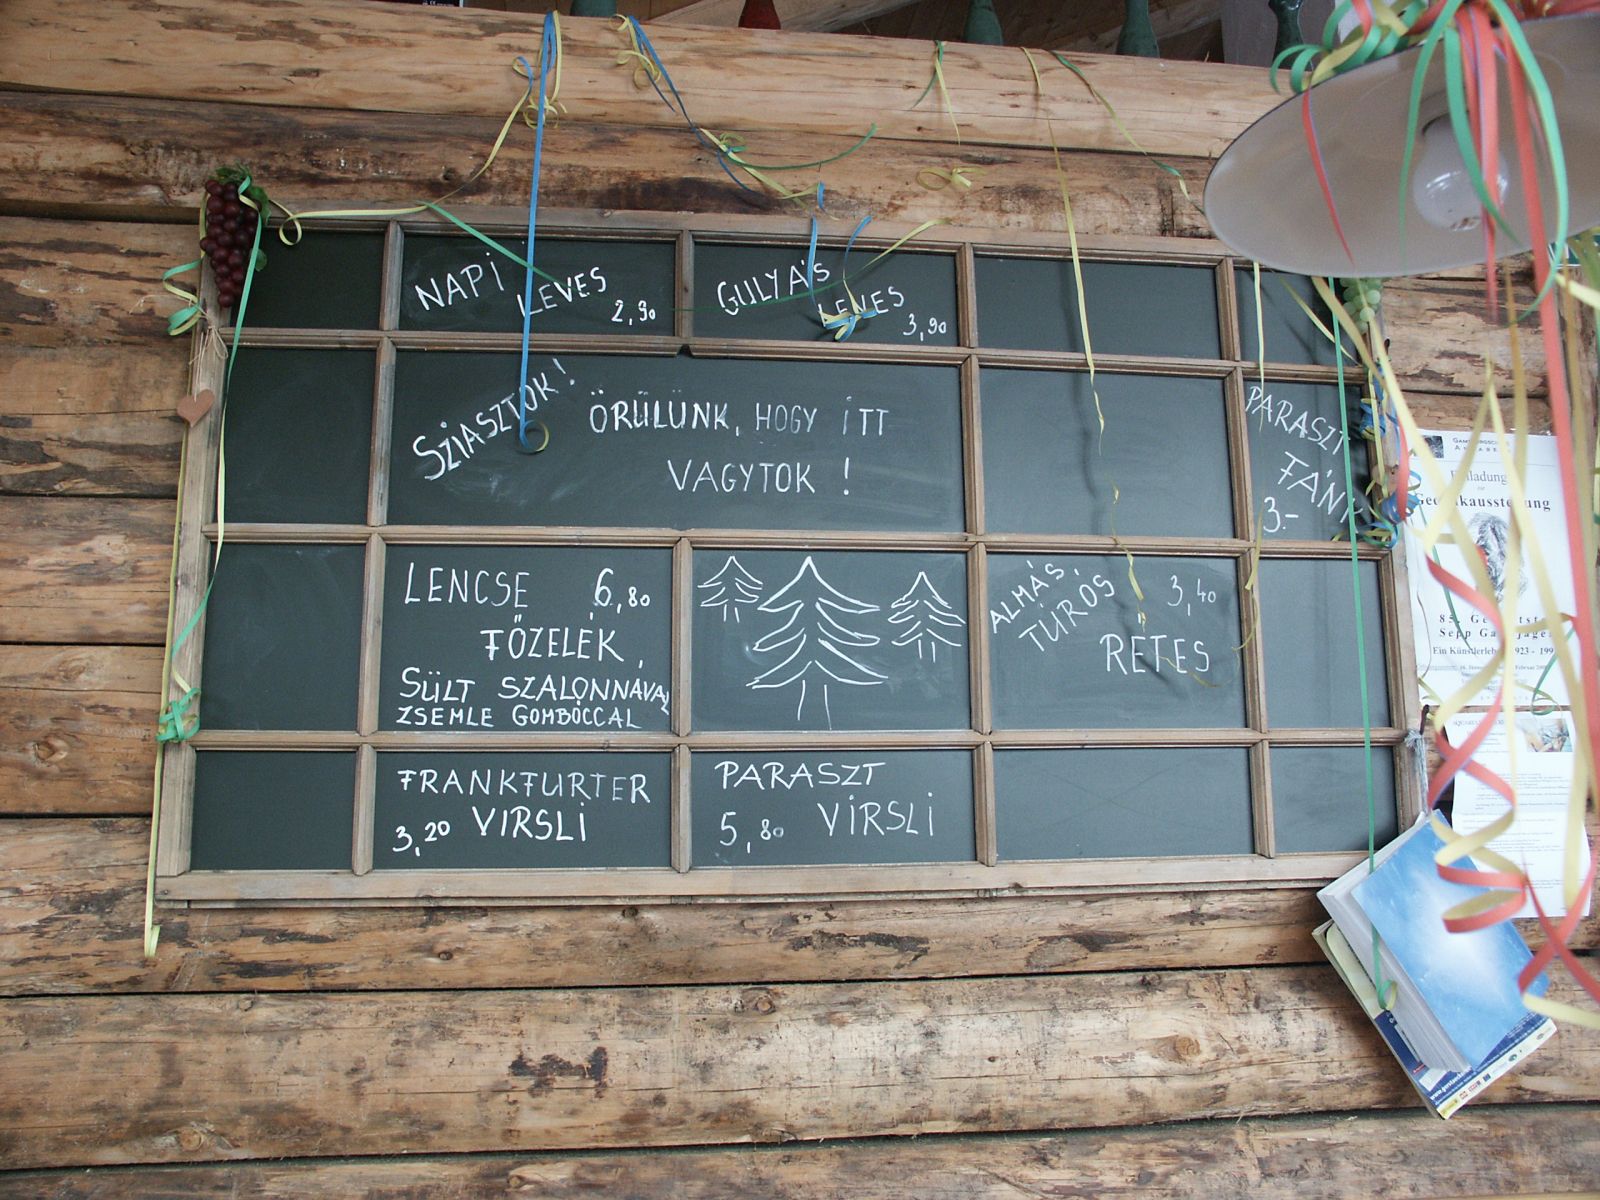 NAPI
LEVES
2,90
GULYÁS
LEVES
3,90
SZIASZTOK!
ÖRÜLÜNK, HOGY ITT
VAGYTOK !
PARASZT
FÁNK
3.-
LENCSE 6,80
FŐZELÉK,
SÜLT SZALONNÁVAL
ZSEMLE GOMBÓCCAL
ALMÁS, 3,40
TÚRÓS
RETES
FRANKFURTER
3,20 VIRSLI
PARASZT
5,80 VIRSLI
Einladung
Gedenkausstellung
Ein Künstlerleben 1923 - 199